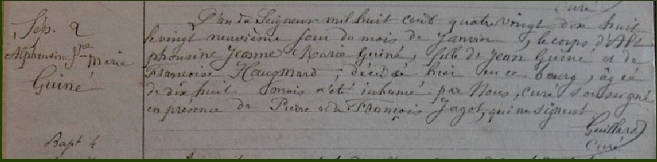 Curé
Sép. 2
Alphonsine Jne Marie
Guiné
L'an du Seigneur mil huit cent quatre vingt dix huit
le vingt neuvième jour du mois de Janvier, le corps d'Al
phonsine Jeanne Marie Guiné, fille de Jean Guiné et de
Françoise Haugmard, décédée hier en ce bourg, âgée
de dix huit mois a été inhumé par Nous, curé soussigné
en présence de Pierre et de François Jagot, qui ne signent
Guillard
Curé
Bapt 4